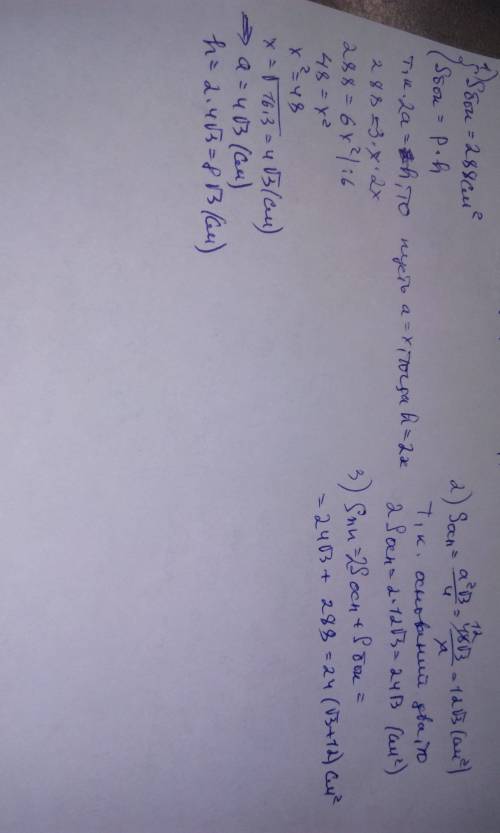 1) Sбок = 288 см²
Sбок = P · h
т.к. 2a = h, то пусть a = x, тогда h = 2x
288 = 3 · x · 2x
288 = 6x² | : 6
48 = x²
x² = 48
x = √16·3 = 4√3 (см)
⇒ a = 4√3 (см)
h = 2 · 4√3 = 8√3 (см)
2) Sосн = a²√3/4 = 48√3/4 = 12√3 (см²)
12
Т.к. оснований два, то
2Sосн = 2 · 12√3 = 24√3 (см²)
3) Sпп = 2Sосн + Sбок =
= 24√3 + 288 = 24(√3+12) см²